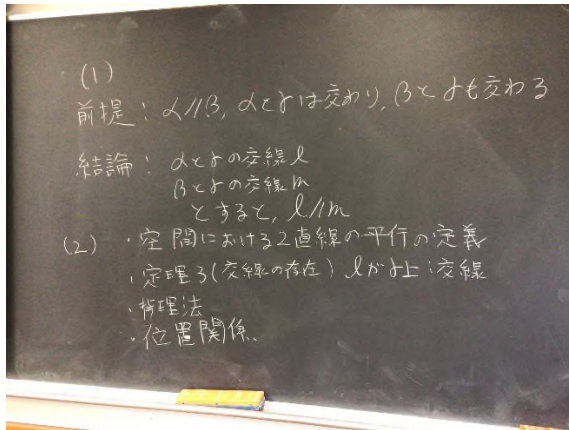 (1)
前提: α//β, αとγは交わり, βとγも交わる
結論: αとγの交線l
βとγの交線m
とすると, l//m
(2) ・空間における2直線の平行の定義
・定理3(交線の存在) lがγ上:交線
・背理法
・位置関係